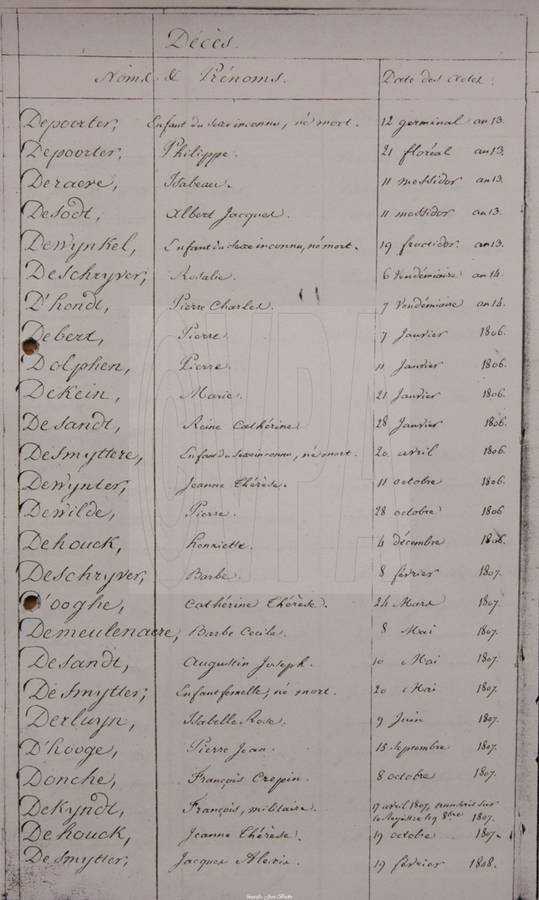 Décès.
Noms & Prénoms. Date des actes.
Depoorter, Enfant du sexe inconnu, né mort. 12 germinal an 13.
Depoorter, Philippe. 21 floréal an 13.
Deraeve, Isabeau. 11 messidor an 13.
Desodt, Albert Jacques. 11 messidor an 13.
Dewynkel, Enfant du sexe inconnu, né mort. 19 fructidor an 13.
Deschryver, Rosalie. 6 Vendémiaire an 14.
D'hondt, Pierre Charles. 7 Vendémiaire an 14.
Debert, Pierre. 7 Janvier 1806.
Dolphen, Pierre. 11 Janvier 1806.
Dekein, Marie. 21 Janvier 1806.
Desandt, Reine Cathérine. 28 Janvier 1806.
Desmyttere, Enfant du sexe inconnu, né mort. 20 avril 1806.
Dewynter, Jeanne Thérèse. 11 octobre 1806.
Dewilde, Pierre. 28 octobre 1806
Dehouck, henriette. 4 décembre 1806.
Deschryver, Barbe. 8 février 1807.
D'ooghe, Cathérine Thérèse. 24 Mars 1807.
Demeulenaere, Barbe Cecile. 8 Mai 1807.
Desandt, Augustin Joseph. 10 Mai 1807.
Desmytter, Enfant femelle, né mort. 20 Mai 1807.
Derluyn, Isabelle Rose. 9 Juin 1807.
D'hooge, Pierre Jean. 15 Septembre 1807.
Donche, François Crepin. 8 octobre 1807.
Dekyndt, François, militaire. 17 avril 1807, transcrit sur
le Registre 19 8bre 1807.
Dehouck, Jeanne Thérèse. 19 octobre 1807.
Desmytter, Jacques Alexis. 19 février 1808.